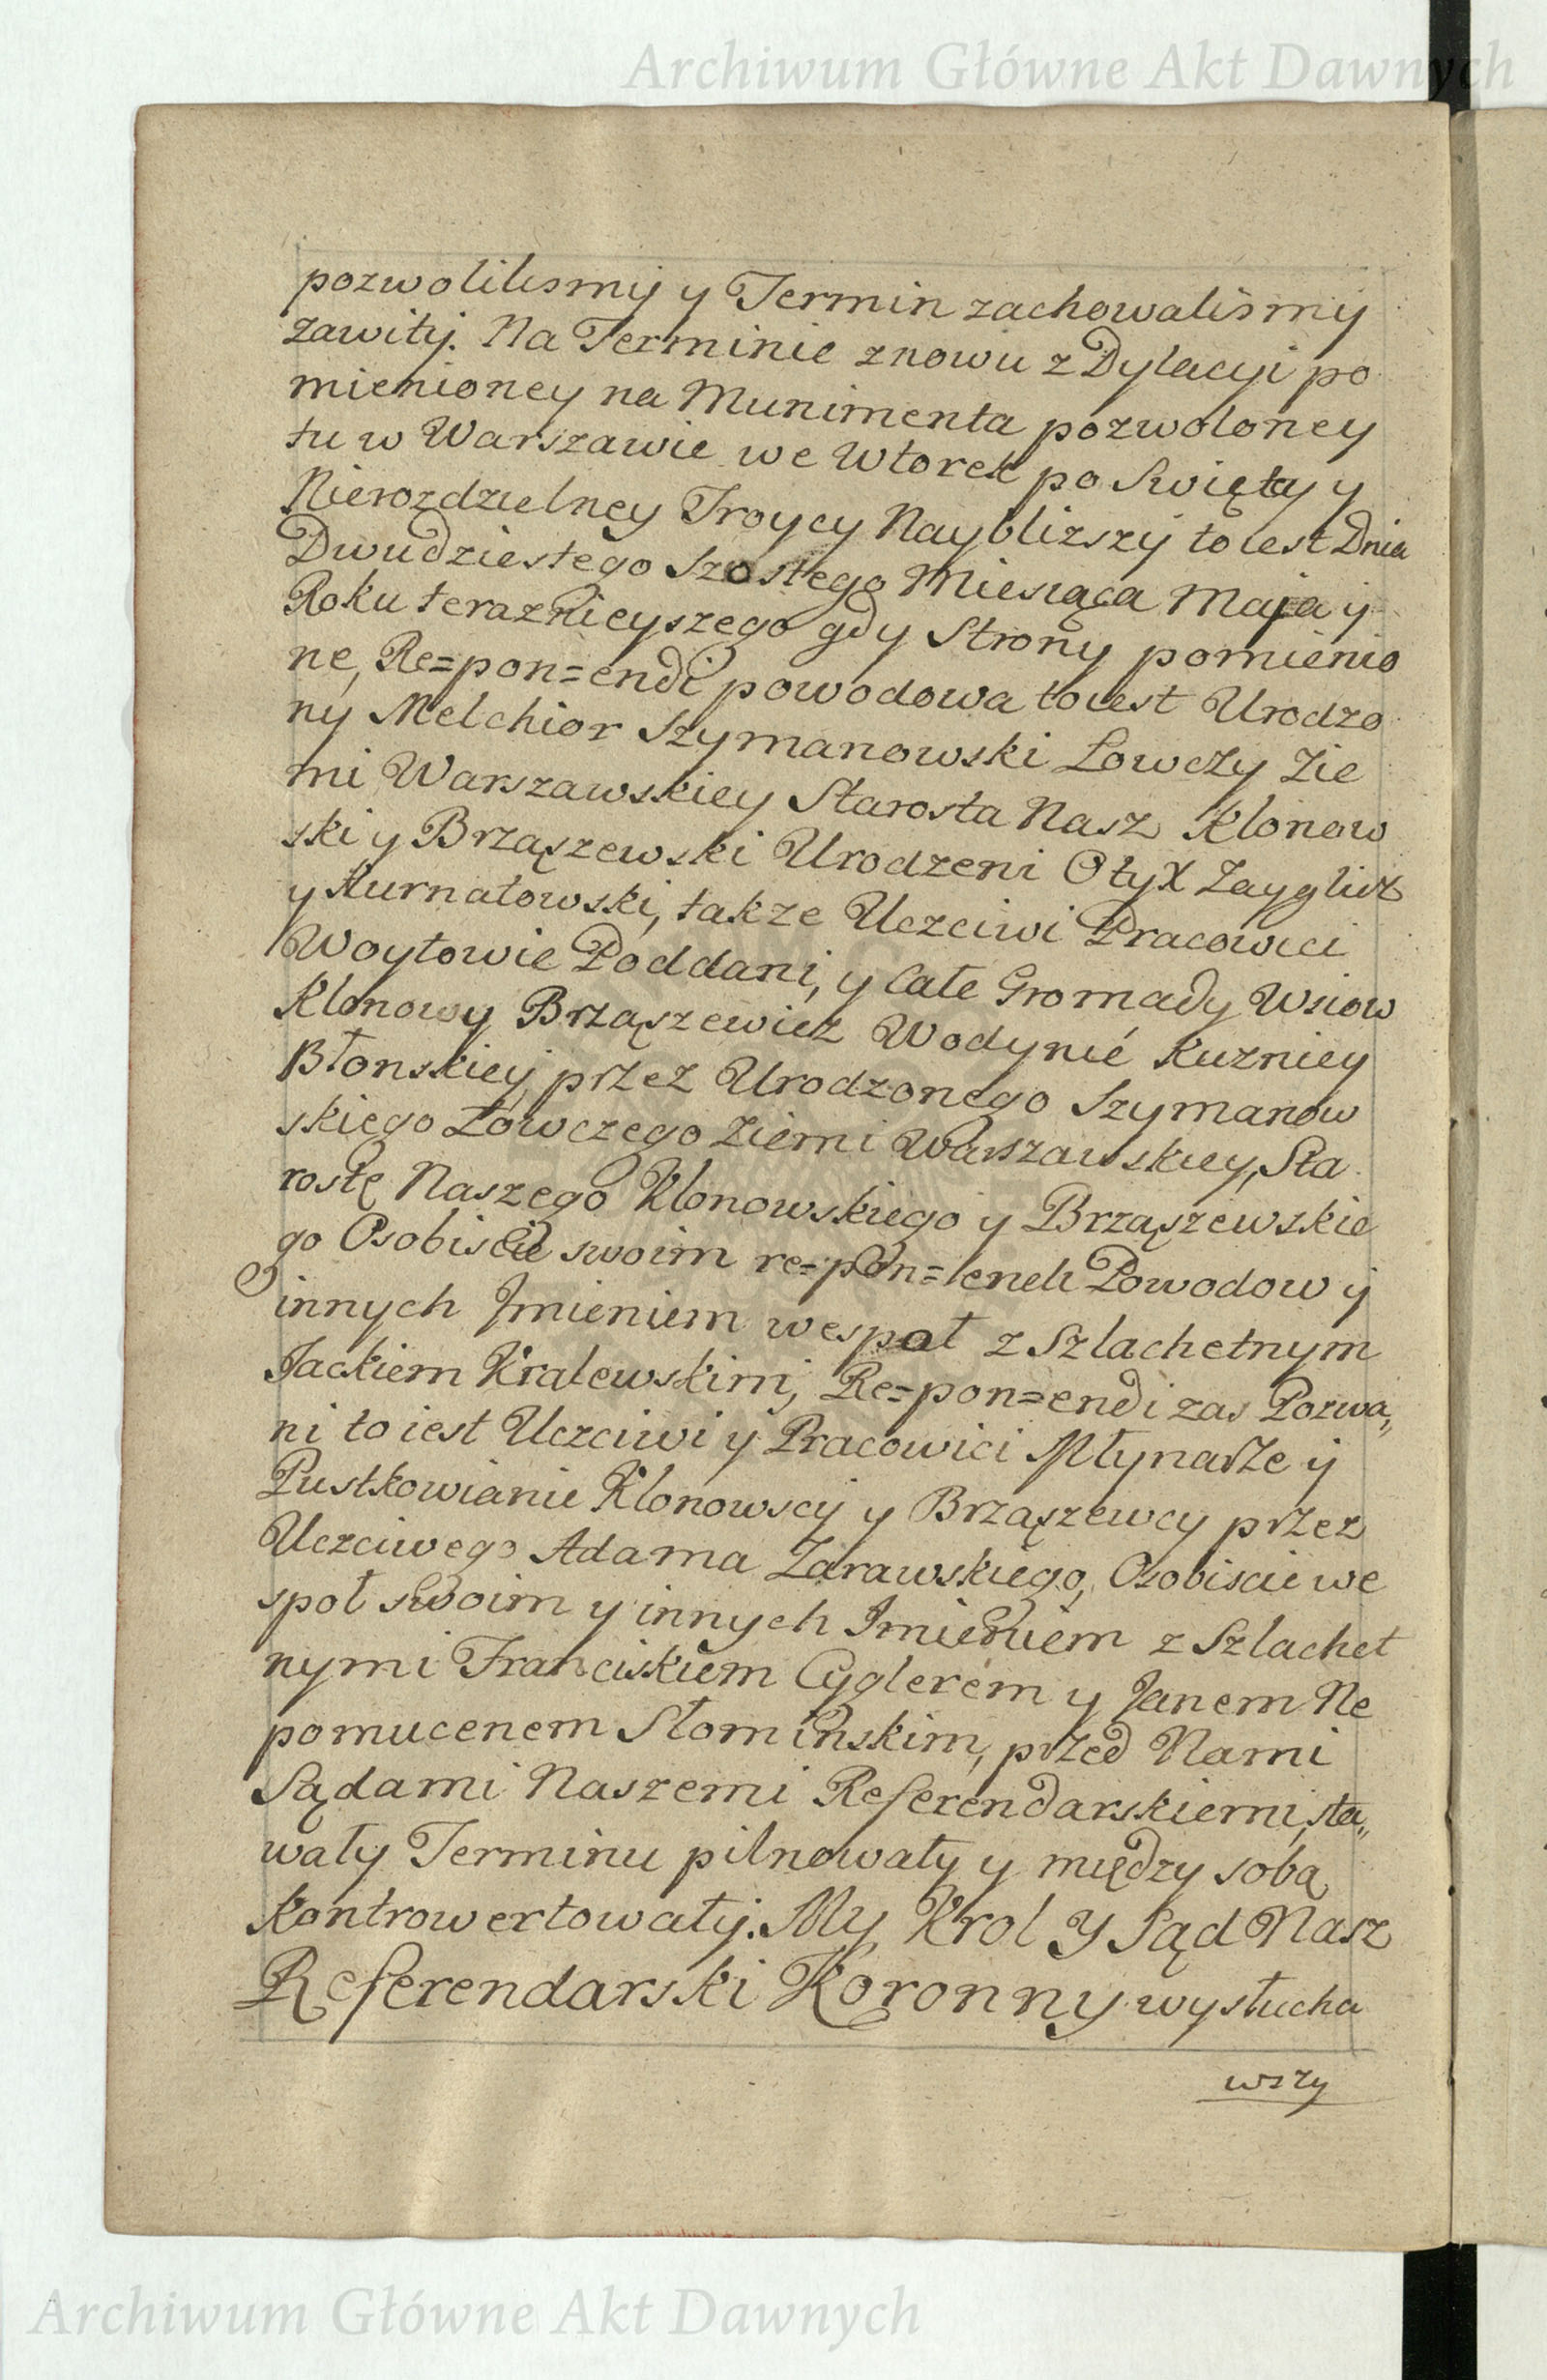 Archiwum Główne Akt Dawnych
pozwolilismy y Termin zachowalismy
zawity. Na Terminie znowu z Dylacyi po
mienioney na Munimenta pozwoloney
tu w Warszawie we Wtorek po Swięty y
Nierozdzielney Troycy Naybliższy to iest Dnia
Dwudziestego szostego Miesiąca Maja y
Roku teraznieyszego gdy Strony pomienio
ne, Re=pon=endi powodowa to iest Urodzo
ny Melchior Szymanowski Łowczy Zie
mi Warszawskiey Starosta Nasz Klonow
ski y Brząszewski Urodzeni Otyx Zayglicz
y Kurnatowski, takze Uczciwi Pracowici
Woytowie Poddani, y Całe Gromady Wsiow
Klonowy Brząszewicz Wodynie Kuzniey
Błonskiey przez Urodzonego Szymanow
skiego Łowczego Ziemi Warszawskiey, Sta
rostę Naszego Klonowskiego y Brząszewskie
go Osobiscie swoim re=pon= Powodow y
innych Jmieniem wespoł z Szlachetnym
Jackiem Kralewskim, Re=pon=endi zas Pozwa„
ni to iest Uczciwi y Pracowici Młynarze y
Pustkowianie Klonowscy y Brząszewcy przez
Uczciwego Adama Zarawskiego, Osobiscie we
społ swoim y innych Jmieniem z Szlachet
nymi Franciskiem Cyglerem y Janem Ne
pomucenem Słominskim, przed Nami
Sądami Naszemi Referendarskiemi, sta„
wały Terminu pilnowały y między sobą
kontrowertowały. My Krol y Sąd Nasz
Referendarski Koronny wysłucha
wszy
Archiwum Główne Akt Dawnych